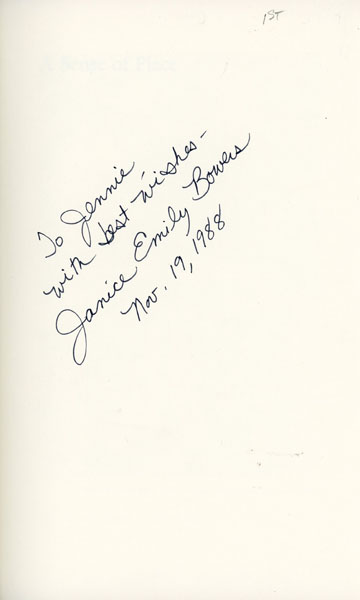 1ST
A Sense of Place
To Jennie
with best wishes-
Janice Emily Bowers
Nov. 19, 1988